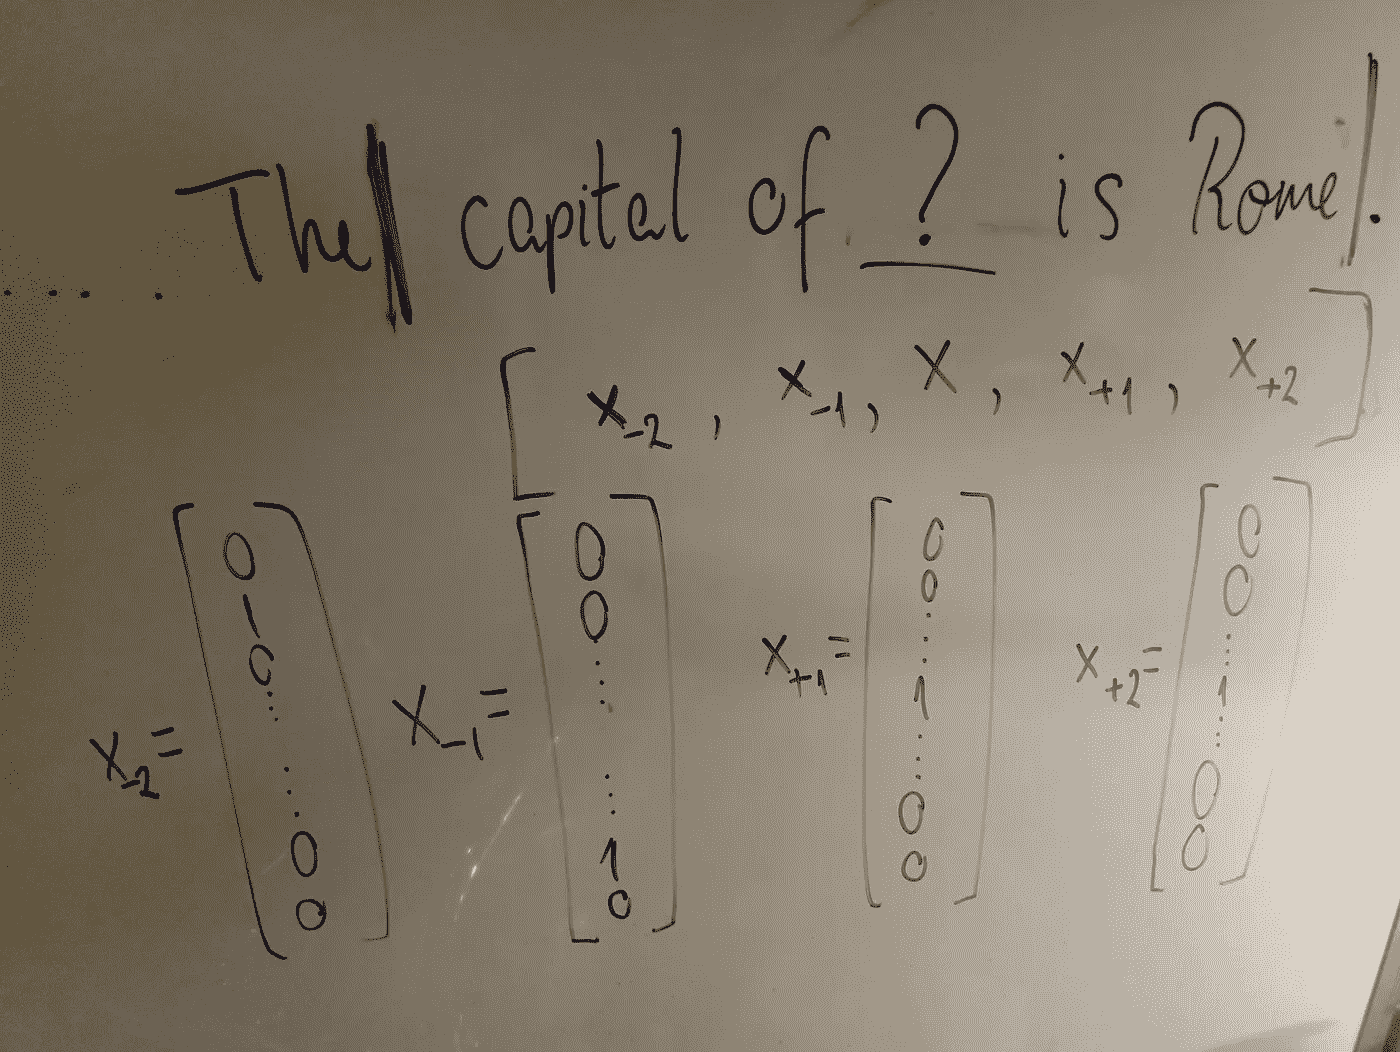 The capital of ? is Rome.
[ x-2 , x-1 , x , x+1 , x+2 ]
x-2 = [ 0 1 0 ⋮ ⋮ 0 0 ]
x-1 = [ 0 0 ⋮ ⋮ 1 0 ]
x+1 = [ 0 0 ⋮ 1 ⋮ 0 0 ]
x+2 = [ 0 0 ⋮ 1 ⋮ 0 0 ]